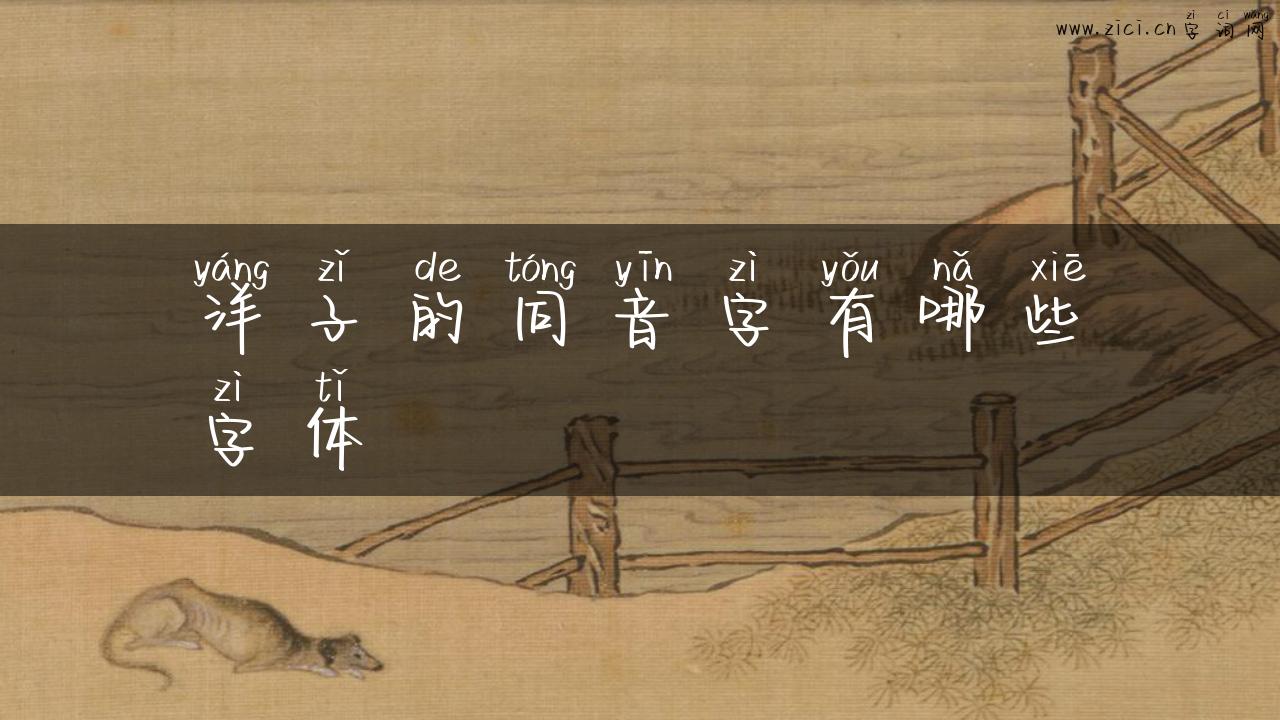 zì cí wǎng
www.zici.cn 字词网
yáng zǐ de tóng yīn zì yǒu nǎ xiē
洋子的同音字有哪些
zì tǐ
字体